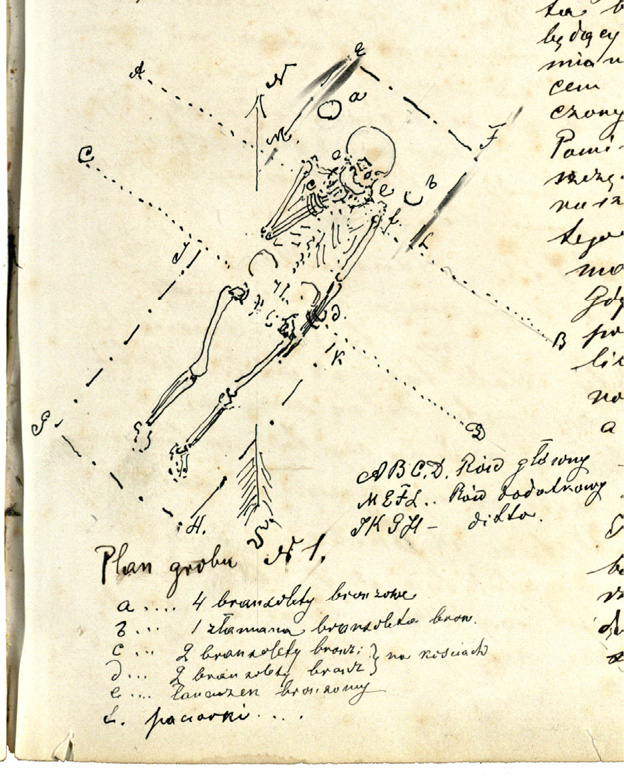 A
E
N
a
M
F
C
c
e
b
f
L
J
d
K
B
G
D
H.
S
ABCD. Rów główny
MEFL.. Rów dodatkowy
JKGH – ditto.
Plan grobu N 1.
a .... 4 bransolety bronzowe
b ... 1 złamana bransoleta bron.
c ... 2 bransolety bronz: } na kościach
d ... 2 bransolety bronz }
e ... Łancuzek bronzowy
f. paciorki ....
będący
cem
czony
tego
mo
Gdy
po
no
a